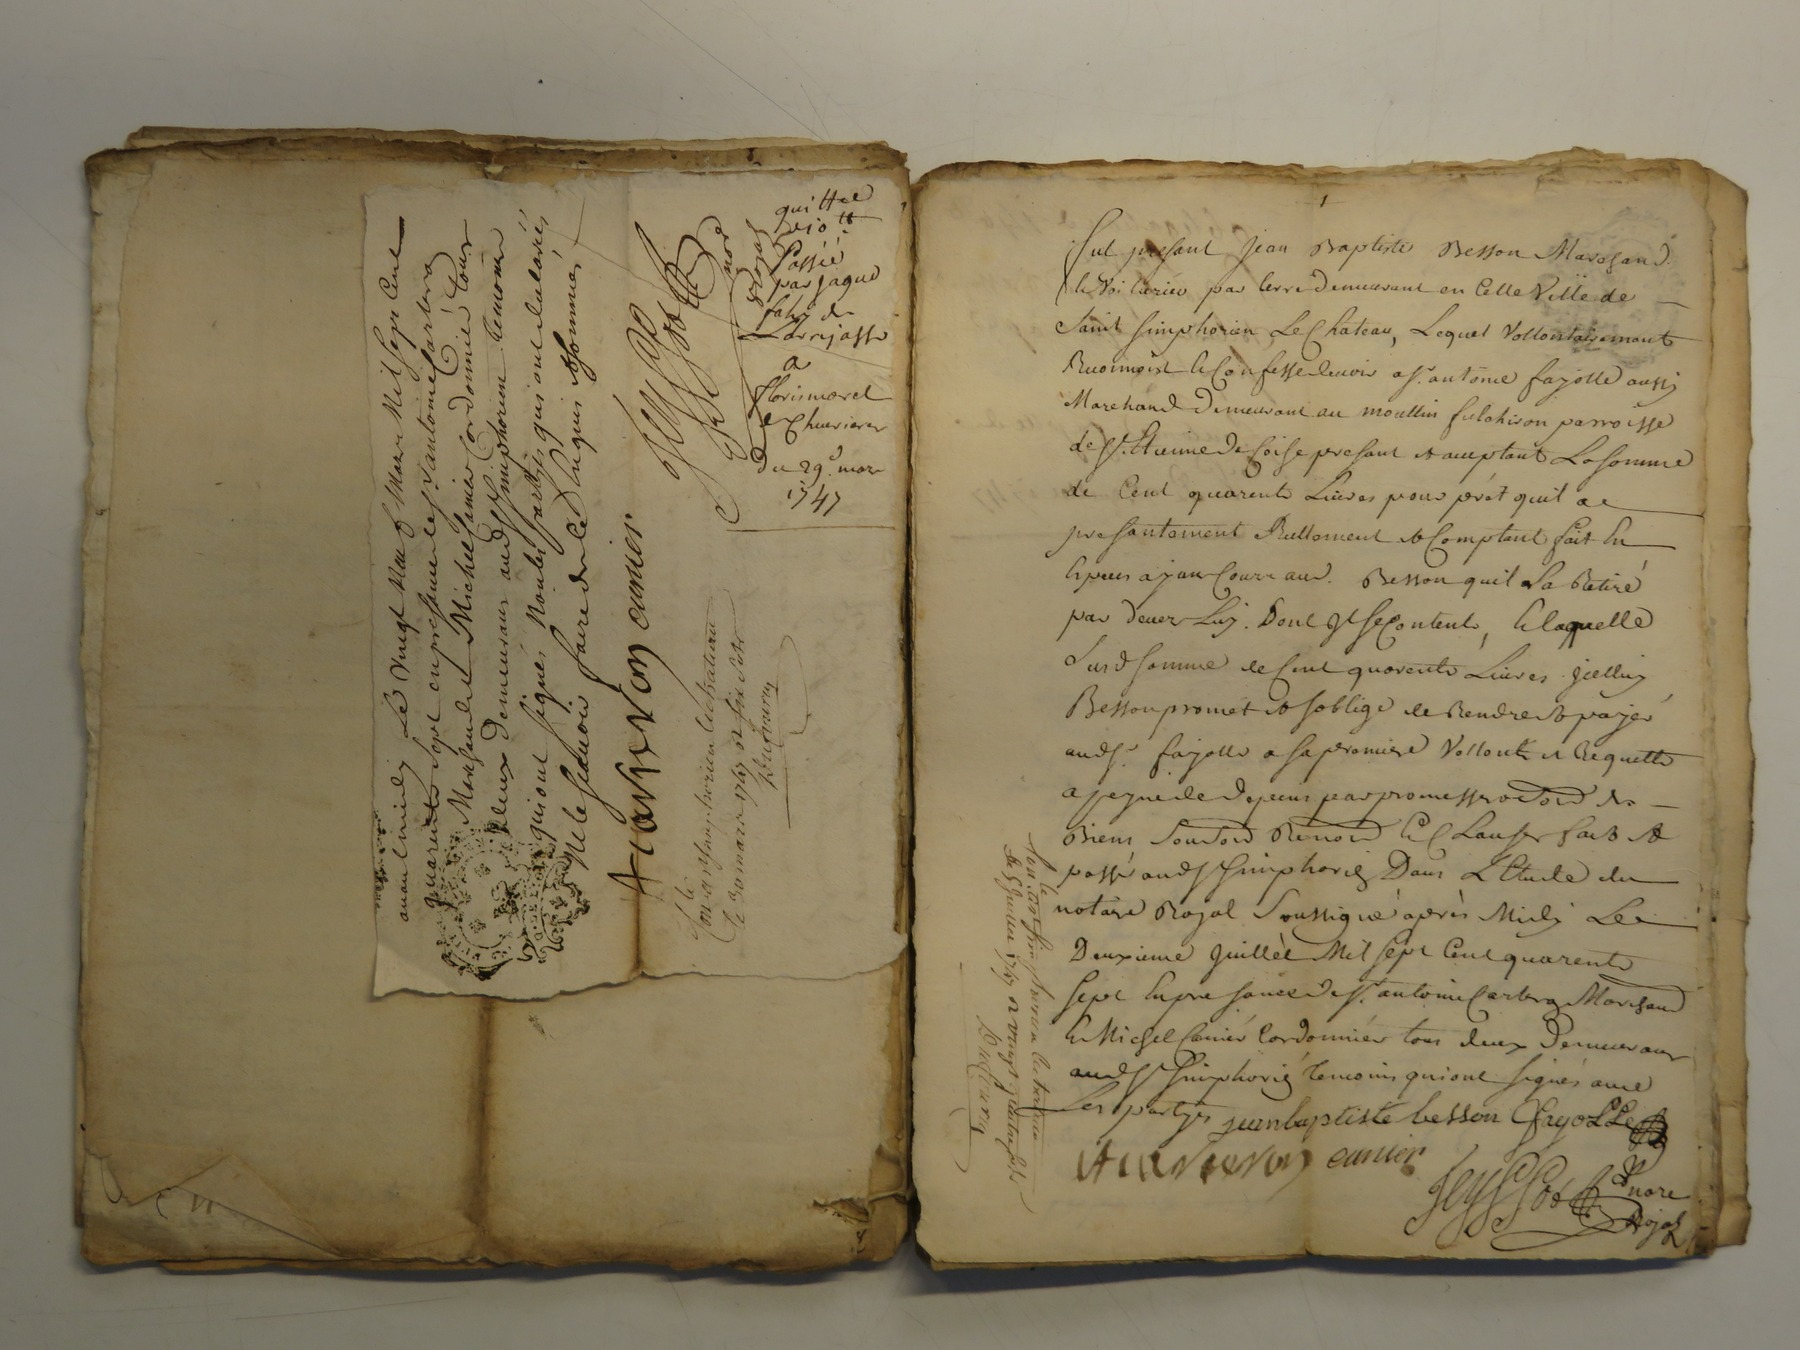 avant midy Le Vingt Neuf Mars Mil Sept Cent
quarente Sept en presance de s.r antoine Carteron
Marchand et Michel Canier Cordonnier tous
deux demeurans aud. S.t Simphorien temoins
qui ont signés Nonles partyes qui ont declarés
Ne le scavoir faire de ce Enquis et sommés
A Carteron canier
nore
Royal
Con. a S.t Simphorien le chateau
le 30 mars 1747
quittce
de 10 tt
Passée
par jaque
de
Larrajasse
a
floris morel
de Chevrieres
du 29.e mars
1747
1
fut presant Jean Baptiste Besson Marchand
et Voiturier par terre demeurant en Cette Ville de
Saint Simphorien Le Chateau, Lequel Vollontairement
Reconnoist et Confesse devoir a s.r antoine fayolle aussy
Marchand Demeurant au moullin fulchiron parroisse
de S.t Etienne De Coise presant et aceptant La somme
de Cent quarente Livres pour prét quil a
presantement Reellement et Comptant fait En
Especes ayant Cours aud. Besson quil La Retiré
par dever Luy. Dont Il se Contente, Et laquelle
Susd. Somme de Cent quarente Livres Jcelluy
Besson promet et soblige de Rendre et payer
aud. s.r fayolle a sa premiere Vollonté et Requette
a peyne de depens par promesse de
Biens Renon Et Clauses fait et
passé aud. S.t Simphorien Dans L'Etude du
notaire Royal Soussigné après Midy Le
Deuxieme Juillet Mil Sept Cent quarente
Sept En presance de s.r antoine Carteron Marchand
Et Michel Canier Cordonnier tous deux Demeurans
aud. S.t Simphorien temoins qui ont signés avec
Les partyes jean baptiste besson fayolle
A Carteron canier
nore
Royal